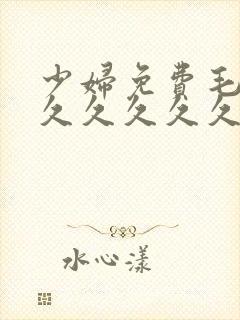 少婦免費毛
久久久久久
水心漾